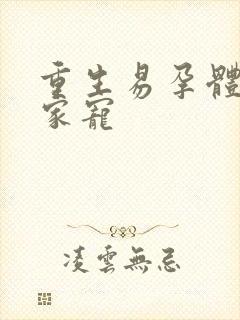 重生易孕體
家寵
凌雲無忌